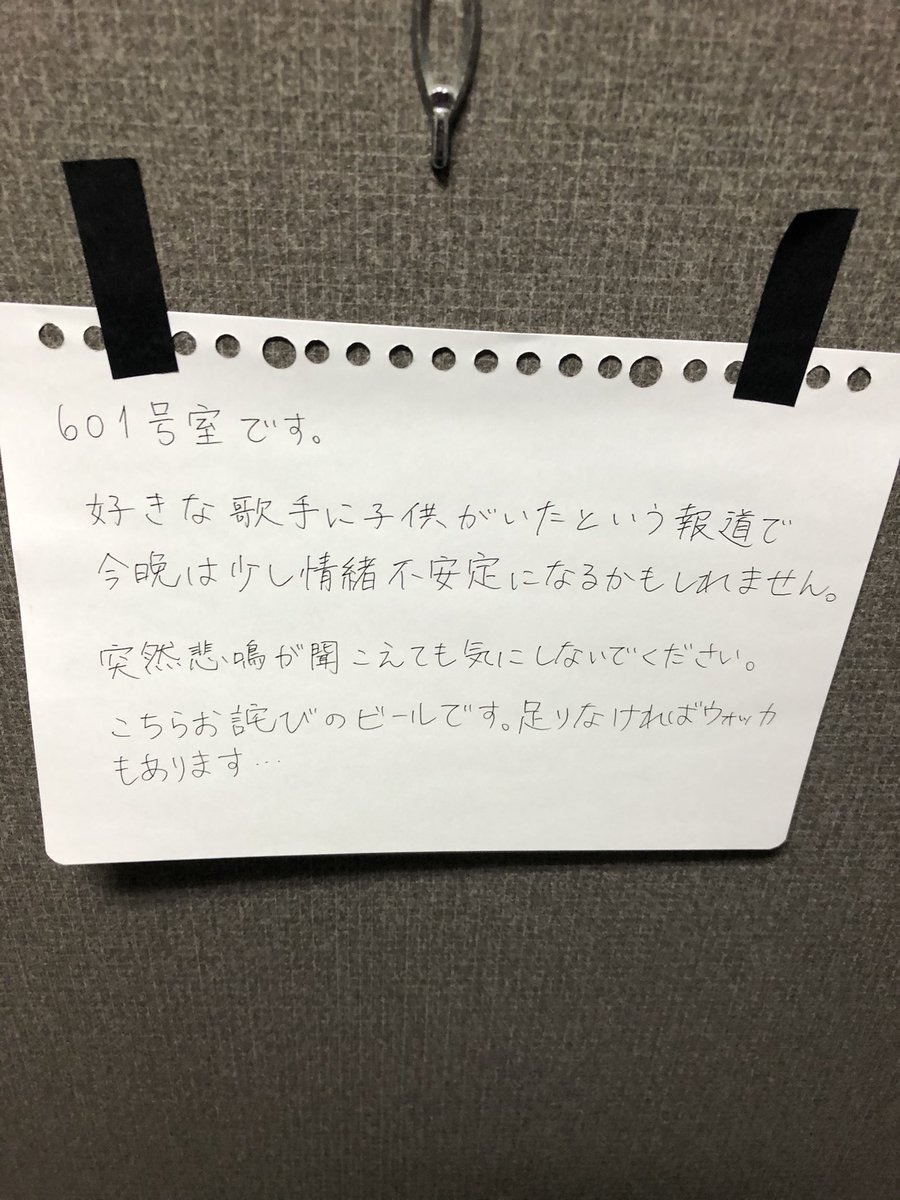 601号室です。
好きな歌手に子供がいたという報道で
今晩は少し情緒不安定になるかもしれません。
突然悲鳴が聞こえても気にしないでください。
こちらお詫びのビールです。足りなければウォッカ
もあります…